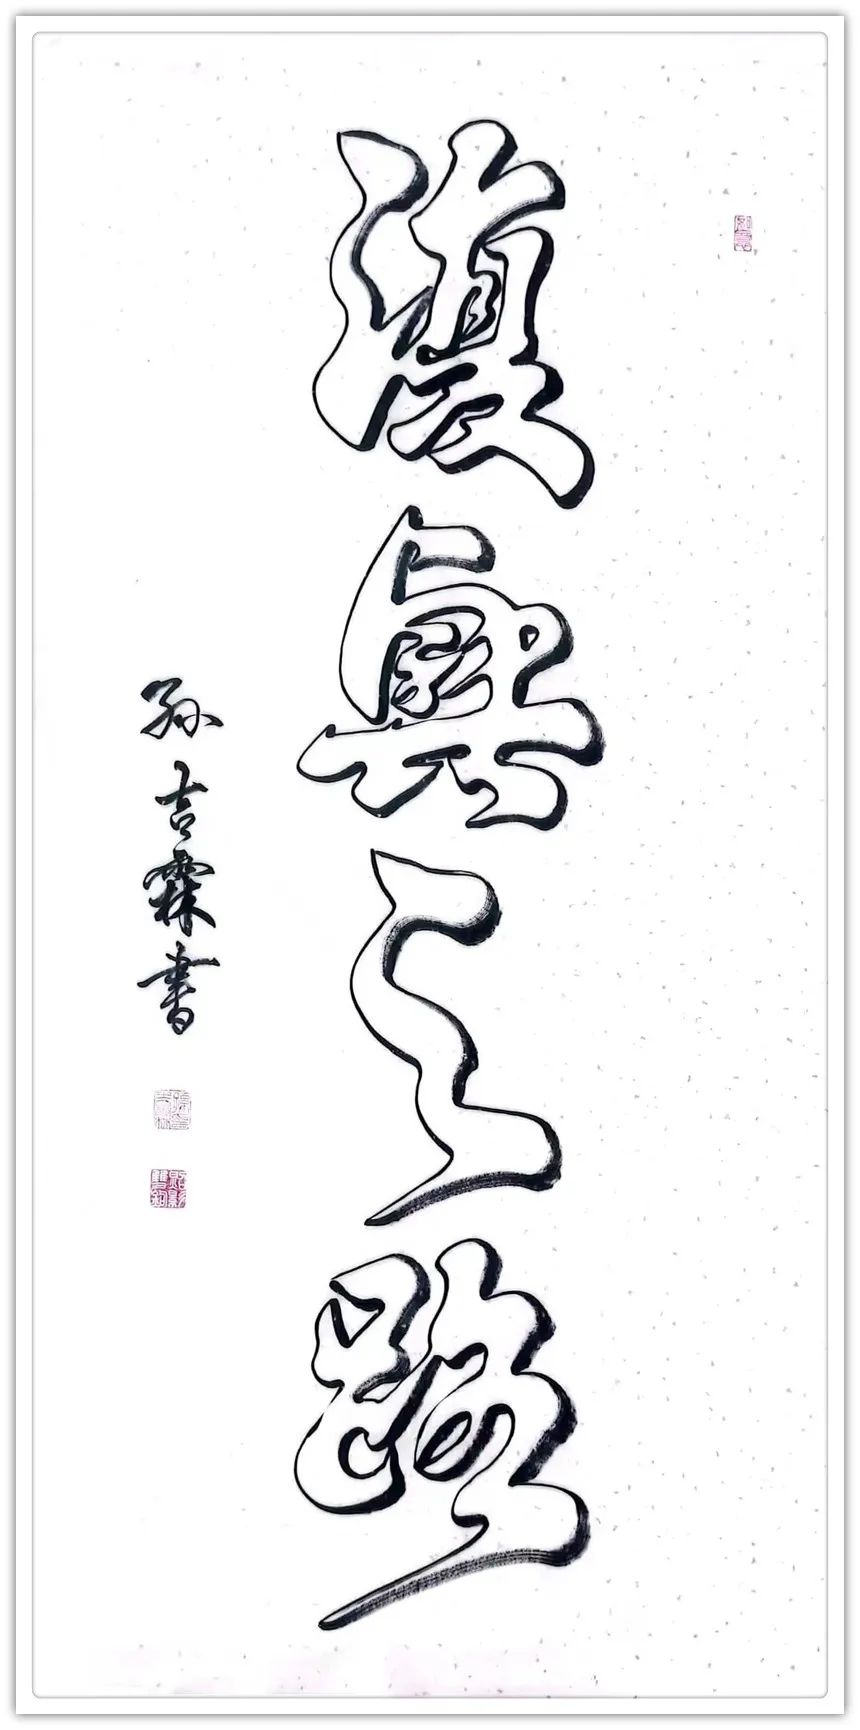 復興之路
孫吉霖書